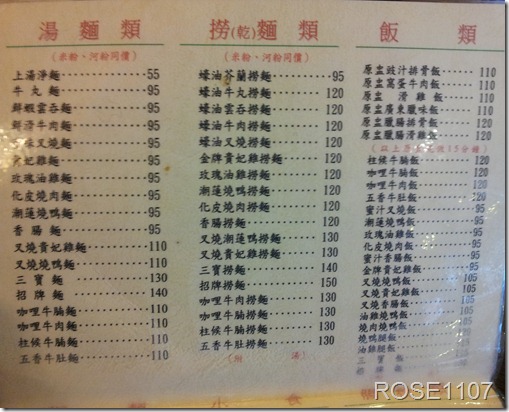 湯 麵 類
(米粉、河粉同價)
上湯淨麵 55
牛丸麵 95
鮮蝦雲吞麵 95
鮮滑牛肉麵 95
叉燒麵 95
貴妃雞麵 95
玫瑰油雞麵 95
化皮燒肉麵 95
潮蓮燒鴨麵 95
香腸麵 95
叉燒貴妃雞麵 110
叉燒燒鴨麵 110
三寶麵 130
招牌麵 140
咖哩牛腩麵 110
咖哩牛肉麵 110
柱候牛腩麵 110
五香牛肚麵 110
撈(乾)麵 類
(米粉、河粉同價)
蠔油芥蘭撈麵 95
蠔油牛丸撈麵 120
蠔油雲吞撈麵 120
蠔油牛肉撈麵 120
金牌貴妃雞撈麵 120
玫瑰油雞撈麵 120
潮蓮燒鴨撈麵 120
化皮燒肉撈麵 120
香腸撈麵 120
叉燒潮蓮燒鴨撈麵 130
叉燒貴妃雞撈麵 130
三寶撈麵 140
招牌撈麵 150
咖哩牛腩撈麵 130
咖哩牛肉撈麵 130
柱候牛腩撈麵 130
五香牛肚撈麵 130
(附 湯)
飯 類
原盅豉汁排骨飯 110
原盅窩蛋牛肉飯 110
原盅滑雞飯 110
原盅廣東臘味飯 110
原盅臘腸排骨飯 120
原盅臘腸滑雞飯 120
15分鐘)
柱候牛腩飯 120
咖哩牛腩飯 120
咖哩牛肉飯 120
五香牛肚飯 120
蜜汁叉燒飯 95
潮蓮燒鴨飯 95
玫瑰油雞飯 95
化皮燒肉飯 95
蜜汁香腸飯 95
金牌貴妃雞飯 95
叉燒燒鴨飯 105
叉燒貴妃飯 105
叉燒香腸飯 105
油雞燒鴨飯 105
燒肉燒鴨飯 105
燒鴨腿飯
油雞腿飯
三寶飯
ROSE1107